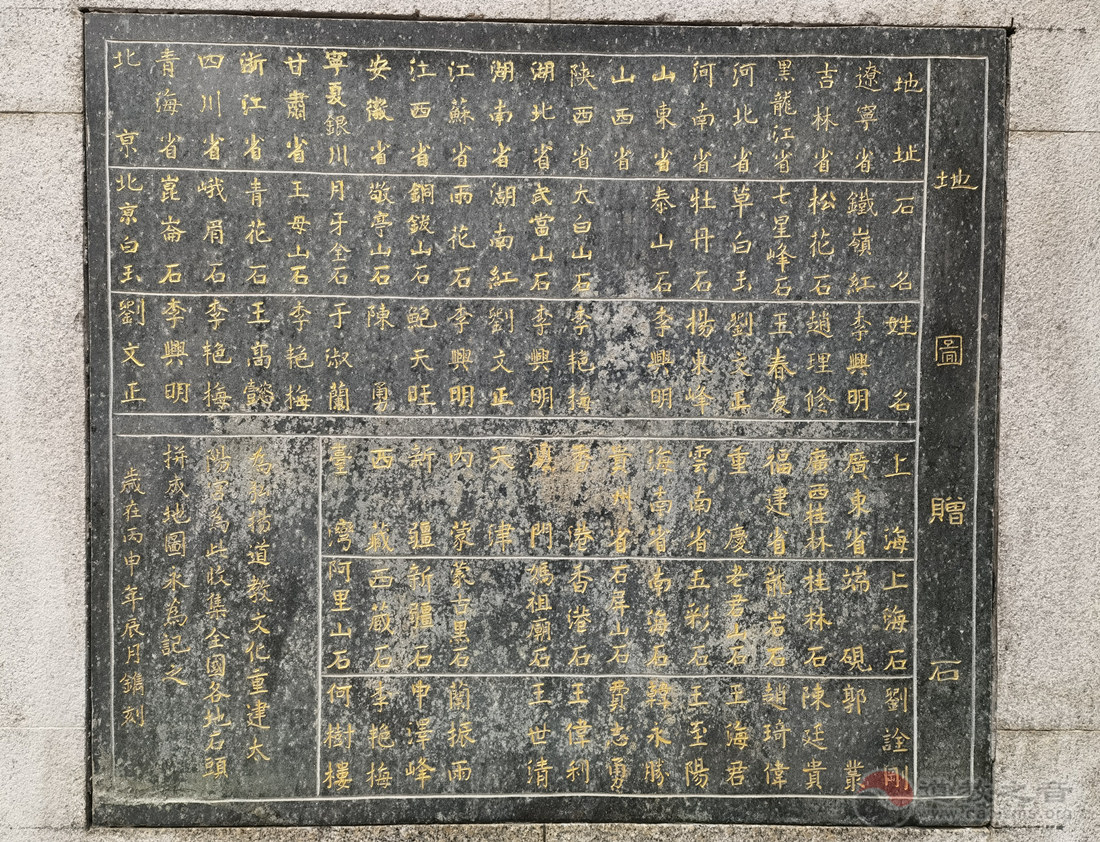 地圖贈石
地址 石名 姓名
遼寧省 鐵嶺紅 李興明
吉林省 松花石 趙理修
黑龍江省 七星峰石 王春友
河北省 草白玉 劉文正
河南省 牡丹石 楊東峰
山東省 泰山石 李興明
山西省
陕西省 太白山石 李艳梅
湖北省 武當山石 李興明
湖南省 湖南紅 劉文正
江蘇省 雨花石 李興明
江西省 銅鈸山石 鲍天旺
安徽省 敬亭山石 陳勇
寧夏銀川 月牙全石 于淑蘭
甘肅省 王母山石 李艳梅
浙江省 青花石 王高
四川省 峨眉石 李艳梅
青海省 崑崙石 李興明
北京 北京白玉 劉文正
上海 上海石 劉詮剛
廣東省 端硯 郭叢
廣西桂林 桂林石 陳廷貴
福建省 龍岩石 趙琦偉
重慶 老君山石 王海君
雲南省 五彩石 王至陽
海南省 南海石 韓永勝
貴州省 石屏山石 費志勇
香港 香港石 王偉利
澳門 媽祖廟石 王世清
天津
内蒙 蒙古黑石 蘭振雨
新疆 新疆石 申澤峰
西藏 西藏石 李艳梅
臺灣 阿里山石 何樹樓
為弘揚道教文化重建太
陽宫為此收集全國各地石頭
拼成地圖永為記之
歲在丙申年辰月鐫刻